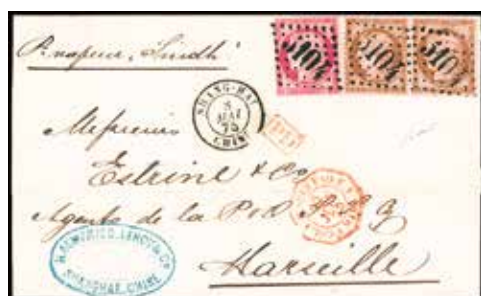 P. vapeur "Sindh"
5104 5104 5104
SHANG-HAI
5
MAI
75
CHINE
PD
Messieurs
Estrine & Co
Agents de la P & O S. N. Co
Marseille
SHANGHAI, CHINE